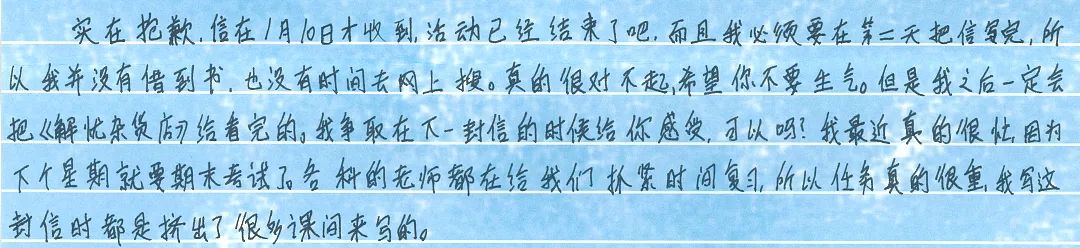 实在抱歉,信在1月10日才收到,活动已经结束了吧,而且我必须要在第二天把信写完,所
以我并没有借到书,也没有时间去网上搜。真的很对不起,希望你不要生气。但是我之后一定会
把《解忧杂货店》给看完的。我争取在下一封信的时候给你感受,可以吗?我最近真的很忙,因为
下个星期就要期末考试了。各科的老师都在给我们抓紧时间复习,所以任务真的很重,我写这
封信时都是挤出了很多课间来写的。